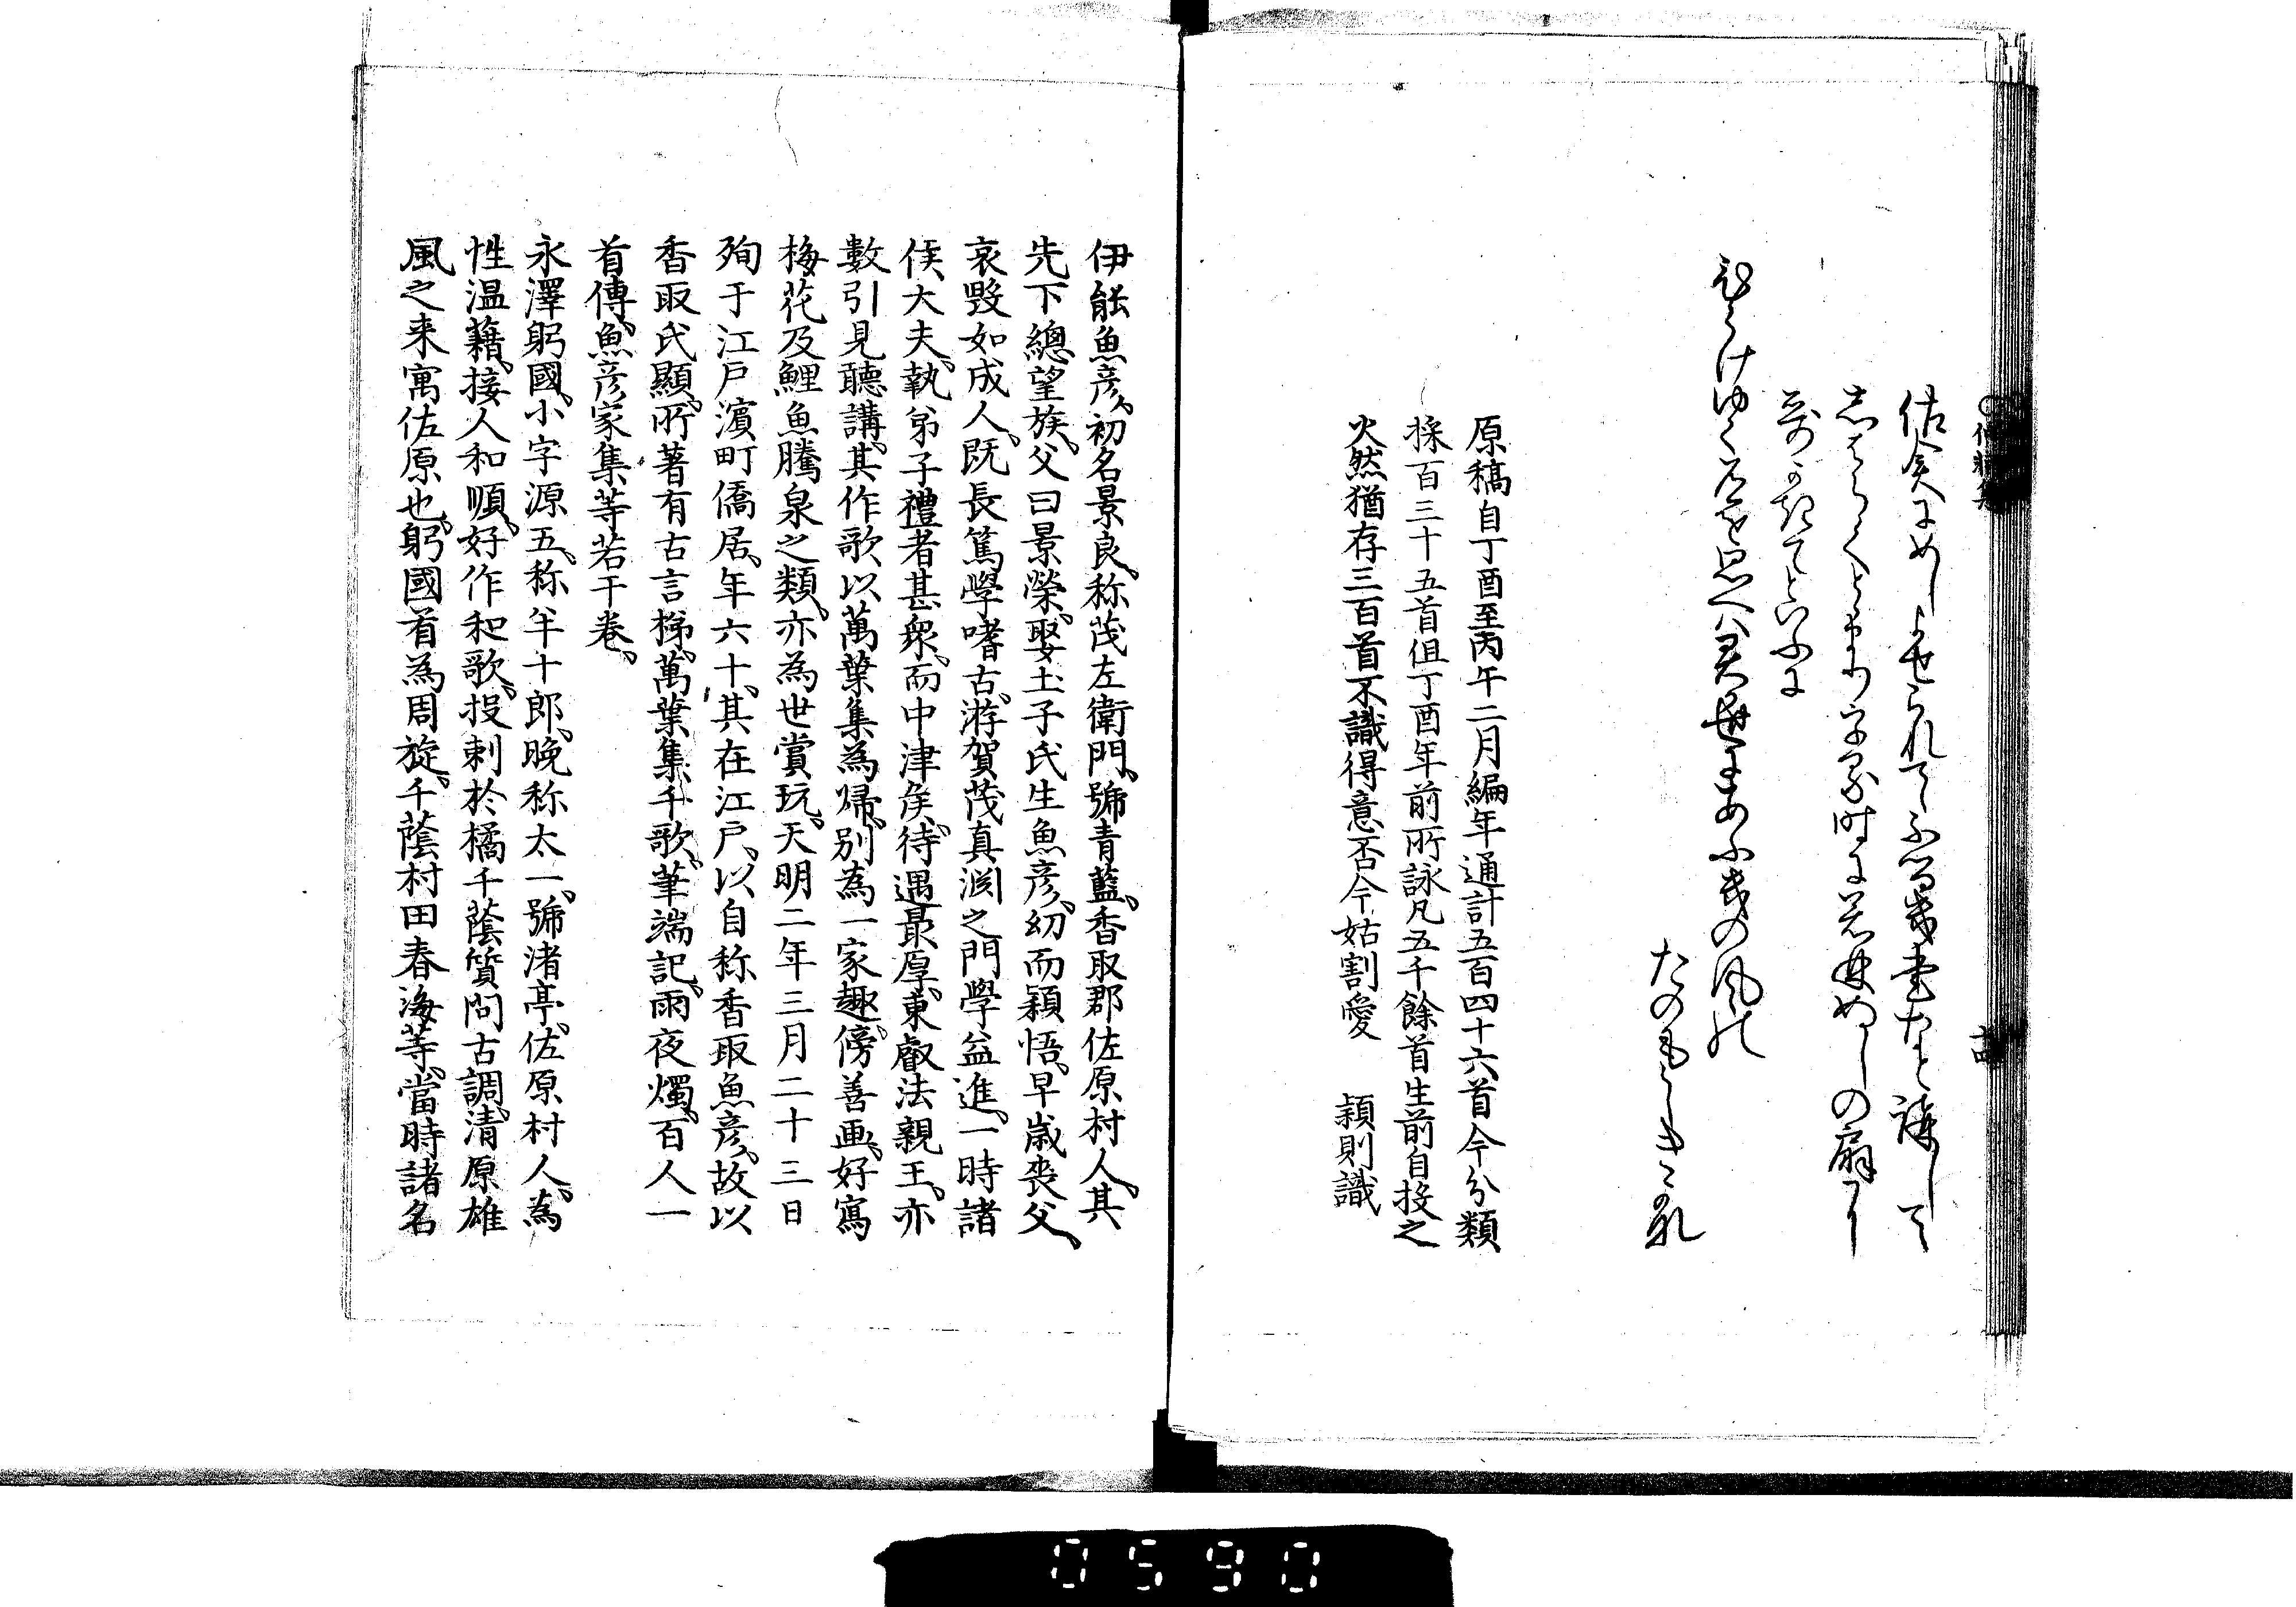 佐倉にめしよせられて
志はらくとまり
哥かきてといふに
ひらけゆく君
原稿自丁酉至丙午二月編年通計五百四十六首今分類
採百三十五首但丁酉年前所詠凡五千餘首生前自投之
火然猶存三百首不識得意否今姑割愛　頴則識
伊能魚彦、初名景良、称茂左衛門、號青藍、香取郡佐原村人、其
先下總望族、父曰景榮、娶土子氏生魚彦、幼而穎悟、早歳喪父、
哀毀如成人、既長篤學嗜古、游賀茂真渕之門學益進、一時諸
侯、大夫、執弟子禮者甚衆、而中津侯、待遇最厚、東叡法親王、亦
數引見聽講、其作歌、以萬葉集為帰、別為一家趣、傍善画、好寫
梅花及鯉魚騰泉之類、亦為世賞玩、天明二年三月二十三日
殉于江戸濱町僑居、年六十、其在江戸、以自称香取魚彦、故以
香取氏顯、所著有古言梯、萬葉集千歌、筆端記、雨夜燭、百人一
首傳、魚彦家集等若干巻、
永澤躬國、小字源五、称半十郎、晩称太一、號渚亭、佐原村人、為
性温藉、接人和順、好作和歌、投刺於橘千蔭質問古調、清原雄
風之来寓佐原也、躬國首為周旋、千蔭村田春海等、當時諸名
0590